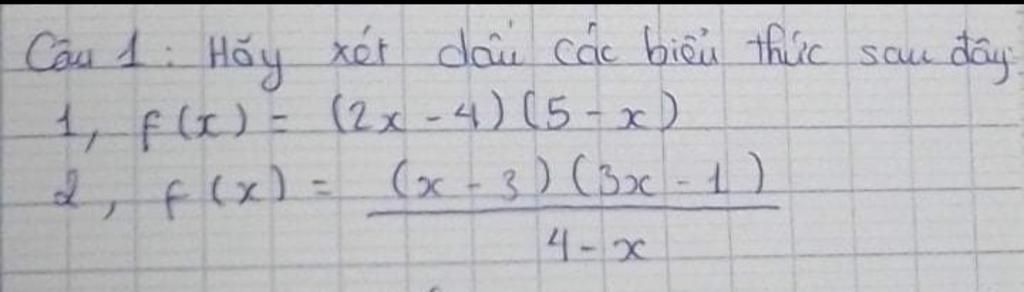 Câu 1 : Hãy xét dấu các biểu thức sau đây:
1, f(x) = (2x - 4)(5 - x)
2, f(x) = (x - 3)(3x - 1)
4 - x